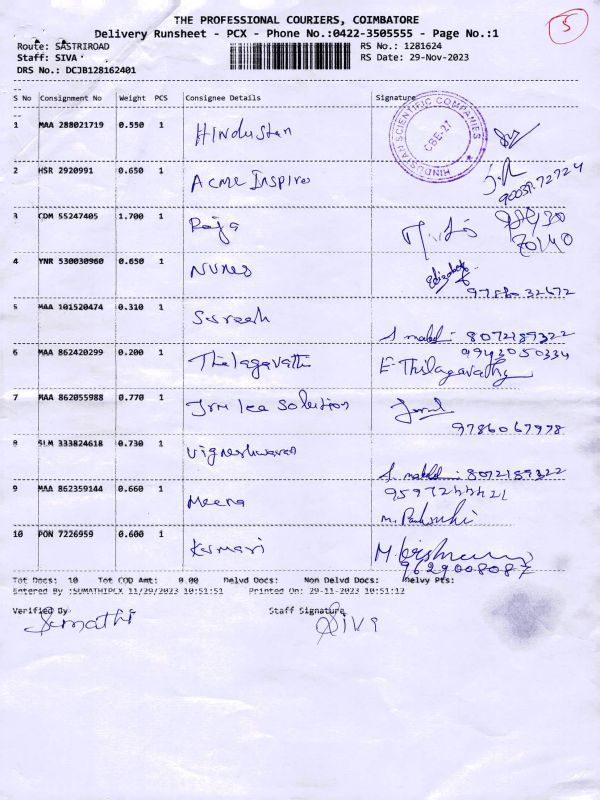 5
THE PROFESSIONAL COURIERS, COIMBATORE
Delivery Runsheet - PCX - Phone No.:0422-3505555 - Page No.:1
Route: SASTRIROAD RS No.: 1281624
Staff: SIVA RS Date: 29-Nov-2023
DRS No.: DCJB128162401
S No Consignment No Weight PCS Consignee Details Signature
HINDUSTAN SCIENTIFIC COMPANIES
CBE-27
1 MAA 288021719 0.550 1 Hindustan
2 HSR 2920991 0.650 1 Acme Inspire
3 CDM 55247405 1.700 1 Raja
4 YNR 530030960 0.650 1 Nunes
9788032672
5 MAA 101520474 0.310 1 Suresh
8072189322
9942050334
6 MAA 862420299 0.200 1 Thilagavathi E-Thilagavathy
7 MAA 862055988 0.770 1 Solution
9786067978
8 SLM 333824618 0.730 1 Vigneshwaran
8072189322
9 MAA 862359144 0.660 1 Meena
9597244421
10 PON 7226959 0.600 1 Kumari
9629008087
Tot Docs: 10 Tot COD Amt: 0.00 Delvd Docs: Non Delvd Docs: Delvy Pts:
Entered By :SUMATHIPCX 11/29/2023 10:51:51 Printed On: 29-11-2023 10:51:12
Verified By Staff Signature
Sumathi Siva